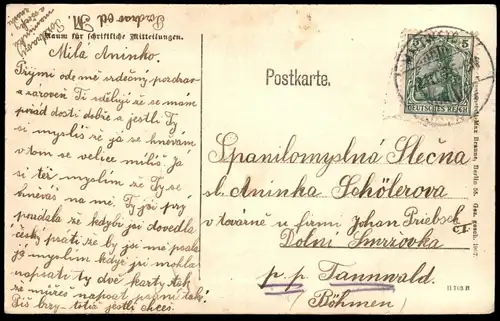 Pozdrav od M.
Raum für schriftliche Mitteilungen.
Milá Aninko.
Přijmi ode mě srdečný pozdrav
a zároveň Ti sděluji že se mám
pořád dosti dobře a jestli Ty
si myslíš že já se hněvám
v tom se velice mílíš Já
si též myslím že Ty se
hněváš na mě. Ty jsi prý
povídala že kdybi jsi dovedla
český psáti že by jsi mě psala
já myslím když jsi mohla
napsati ty dvě karty tak
že můžeš napsat taky
Piš brzy jestli chceš.
Postkarte.
5
DEUTSCHES REICH
Spanilomyslná Slečna
sl. Aninka Schölerova
v továrně u firmi Johan Priebsch
Dolní Smrzovka
p. p. Tannwald.
Böhmen